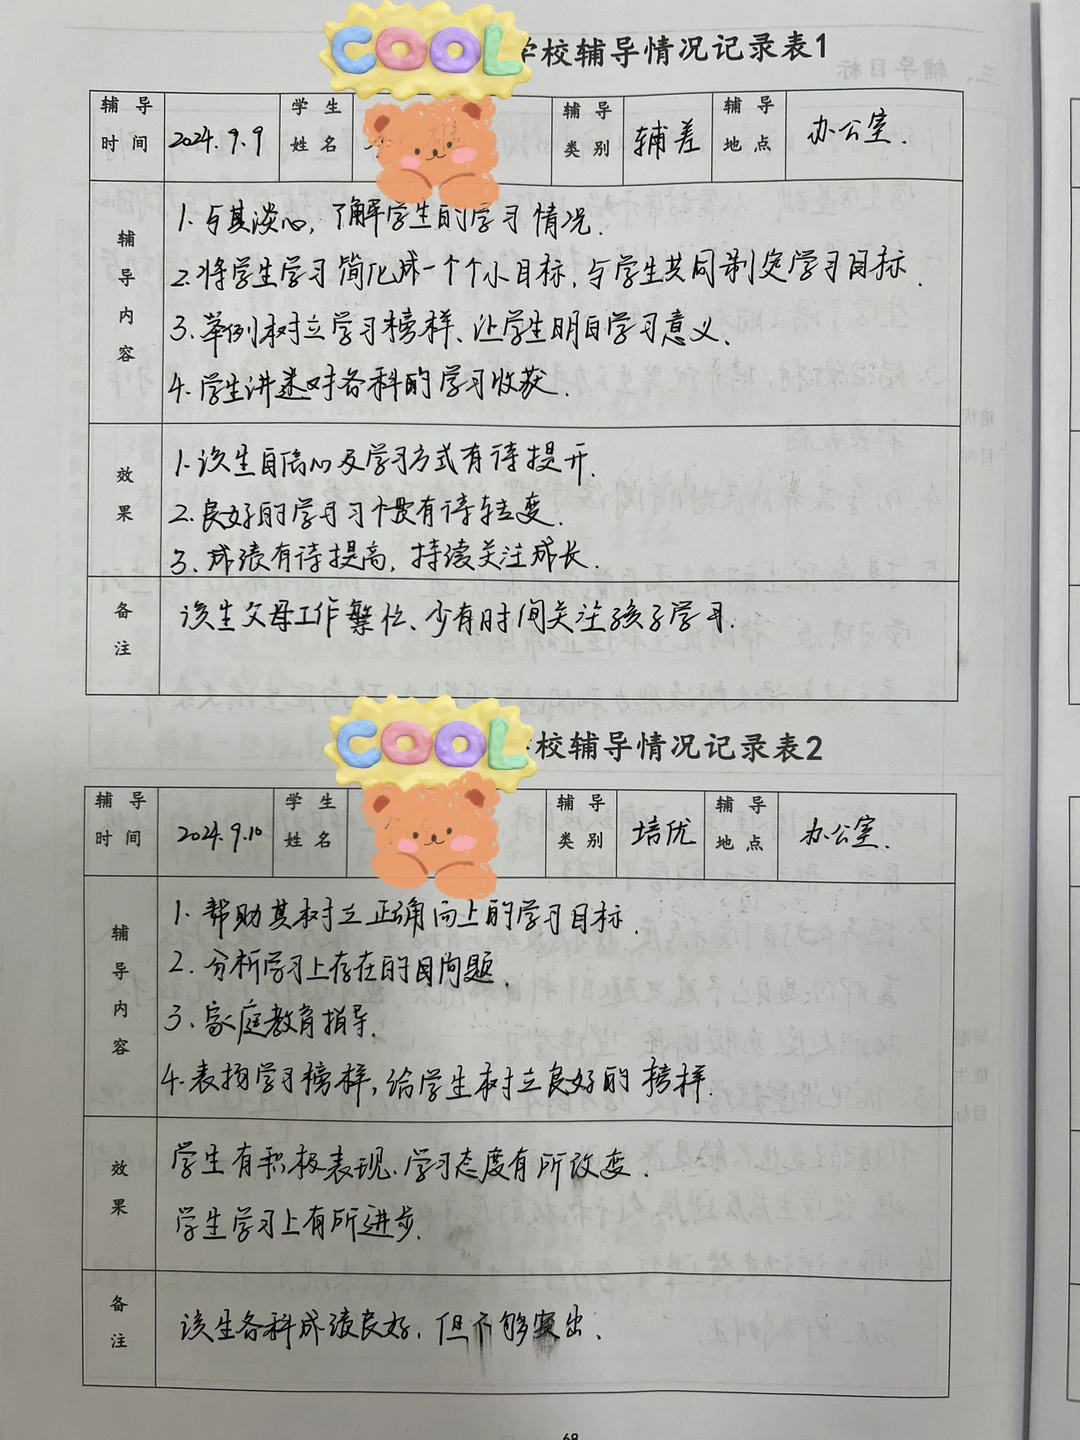 COOL
学校辅导情况记录表1
辅导时间 2024.9.9 学生姓名 辅导类别 辅差 辅导地点 办公室.
辅导内容
1.与其谈心,了解学生的学习情况.
2.将学生学习简化成一个个小目标,与学生共同制定学习目标.
3.举例树立学习榜样、让学生明白学习意义.
4.学生讲述对各科的学习收获.
效果
1.该生自信心及学习方式有待提升.
2.良好的学习习惯有待转变.
3.成绩有待提高,持续关注成长.
备注
该生父母工作繁忙、少有时间关注孩子学习.
COOL
学校辅导情况记录表2
辅导时间 2024.9.10 学生姓名 辅导类别 培优 辅导地点 办公室.
辅导内容
1.帮助其树立正确向上的学习目标.
2.分析学习上存在的问题.
3.家庭教育指导.
4.表扬学习榜样,给学生树立良好的榜样.
效果
学生有积极表现、学习态度有所改变.
学生学习上有所进步.
备注
该生各科成绩良好,但不够突出.
68